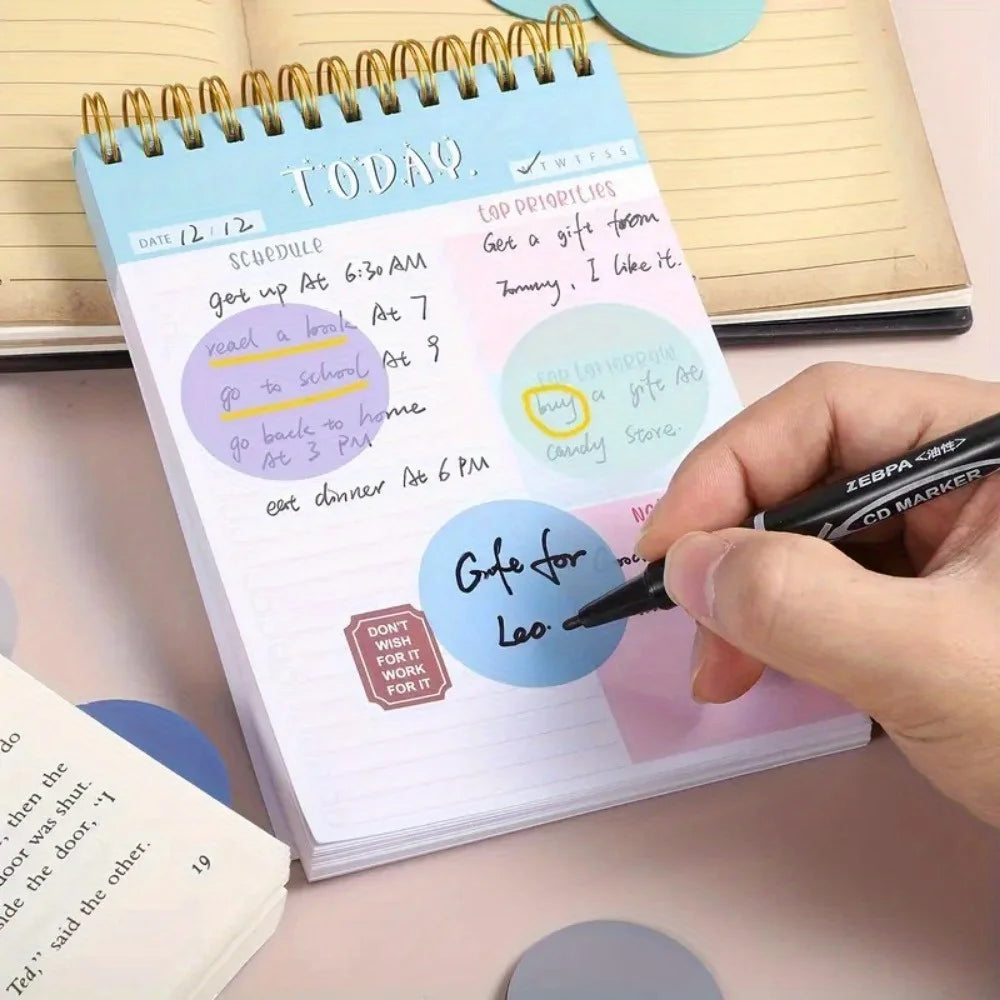 TODAY.
T W T F S S
DATE 12 / 12
SCHEDULE
get up At 6:30 AM
read a book At 7
go to school At 9
go back to home
At 3 PM
eat dinner At 6 PM
TOP PRIORITIES
Get a gift from
Tommy, I like it.
FOR TOMORROW
buy a gift At
candy store.
for
Leo.
DON'T
WISH
FOR IT
WORK
FOR IT
ZEBPA <油性>
CD MARKER
do
, then the
door was shut.
side the door, "I
Ted," said the other.
19